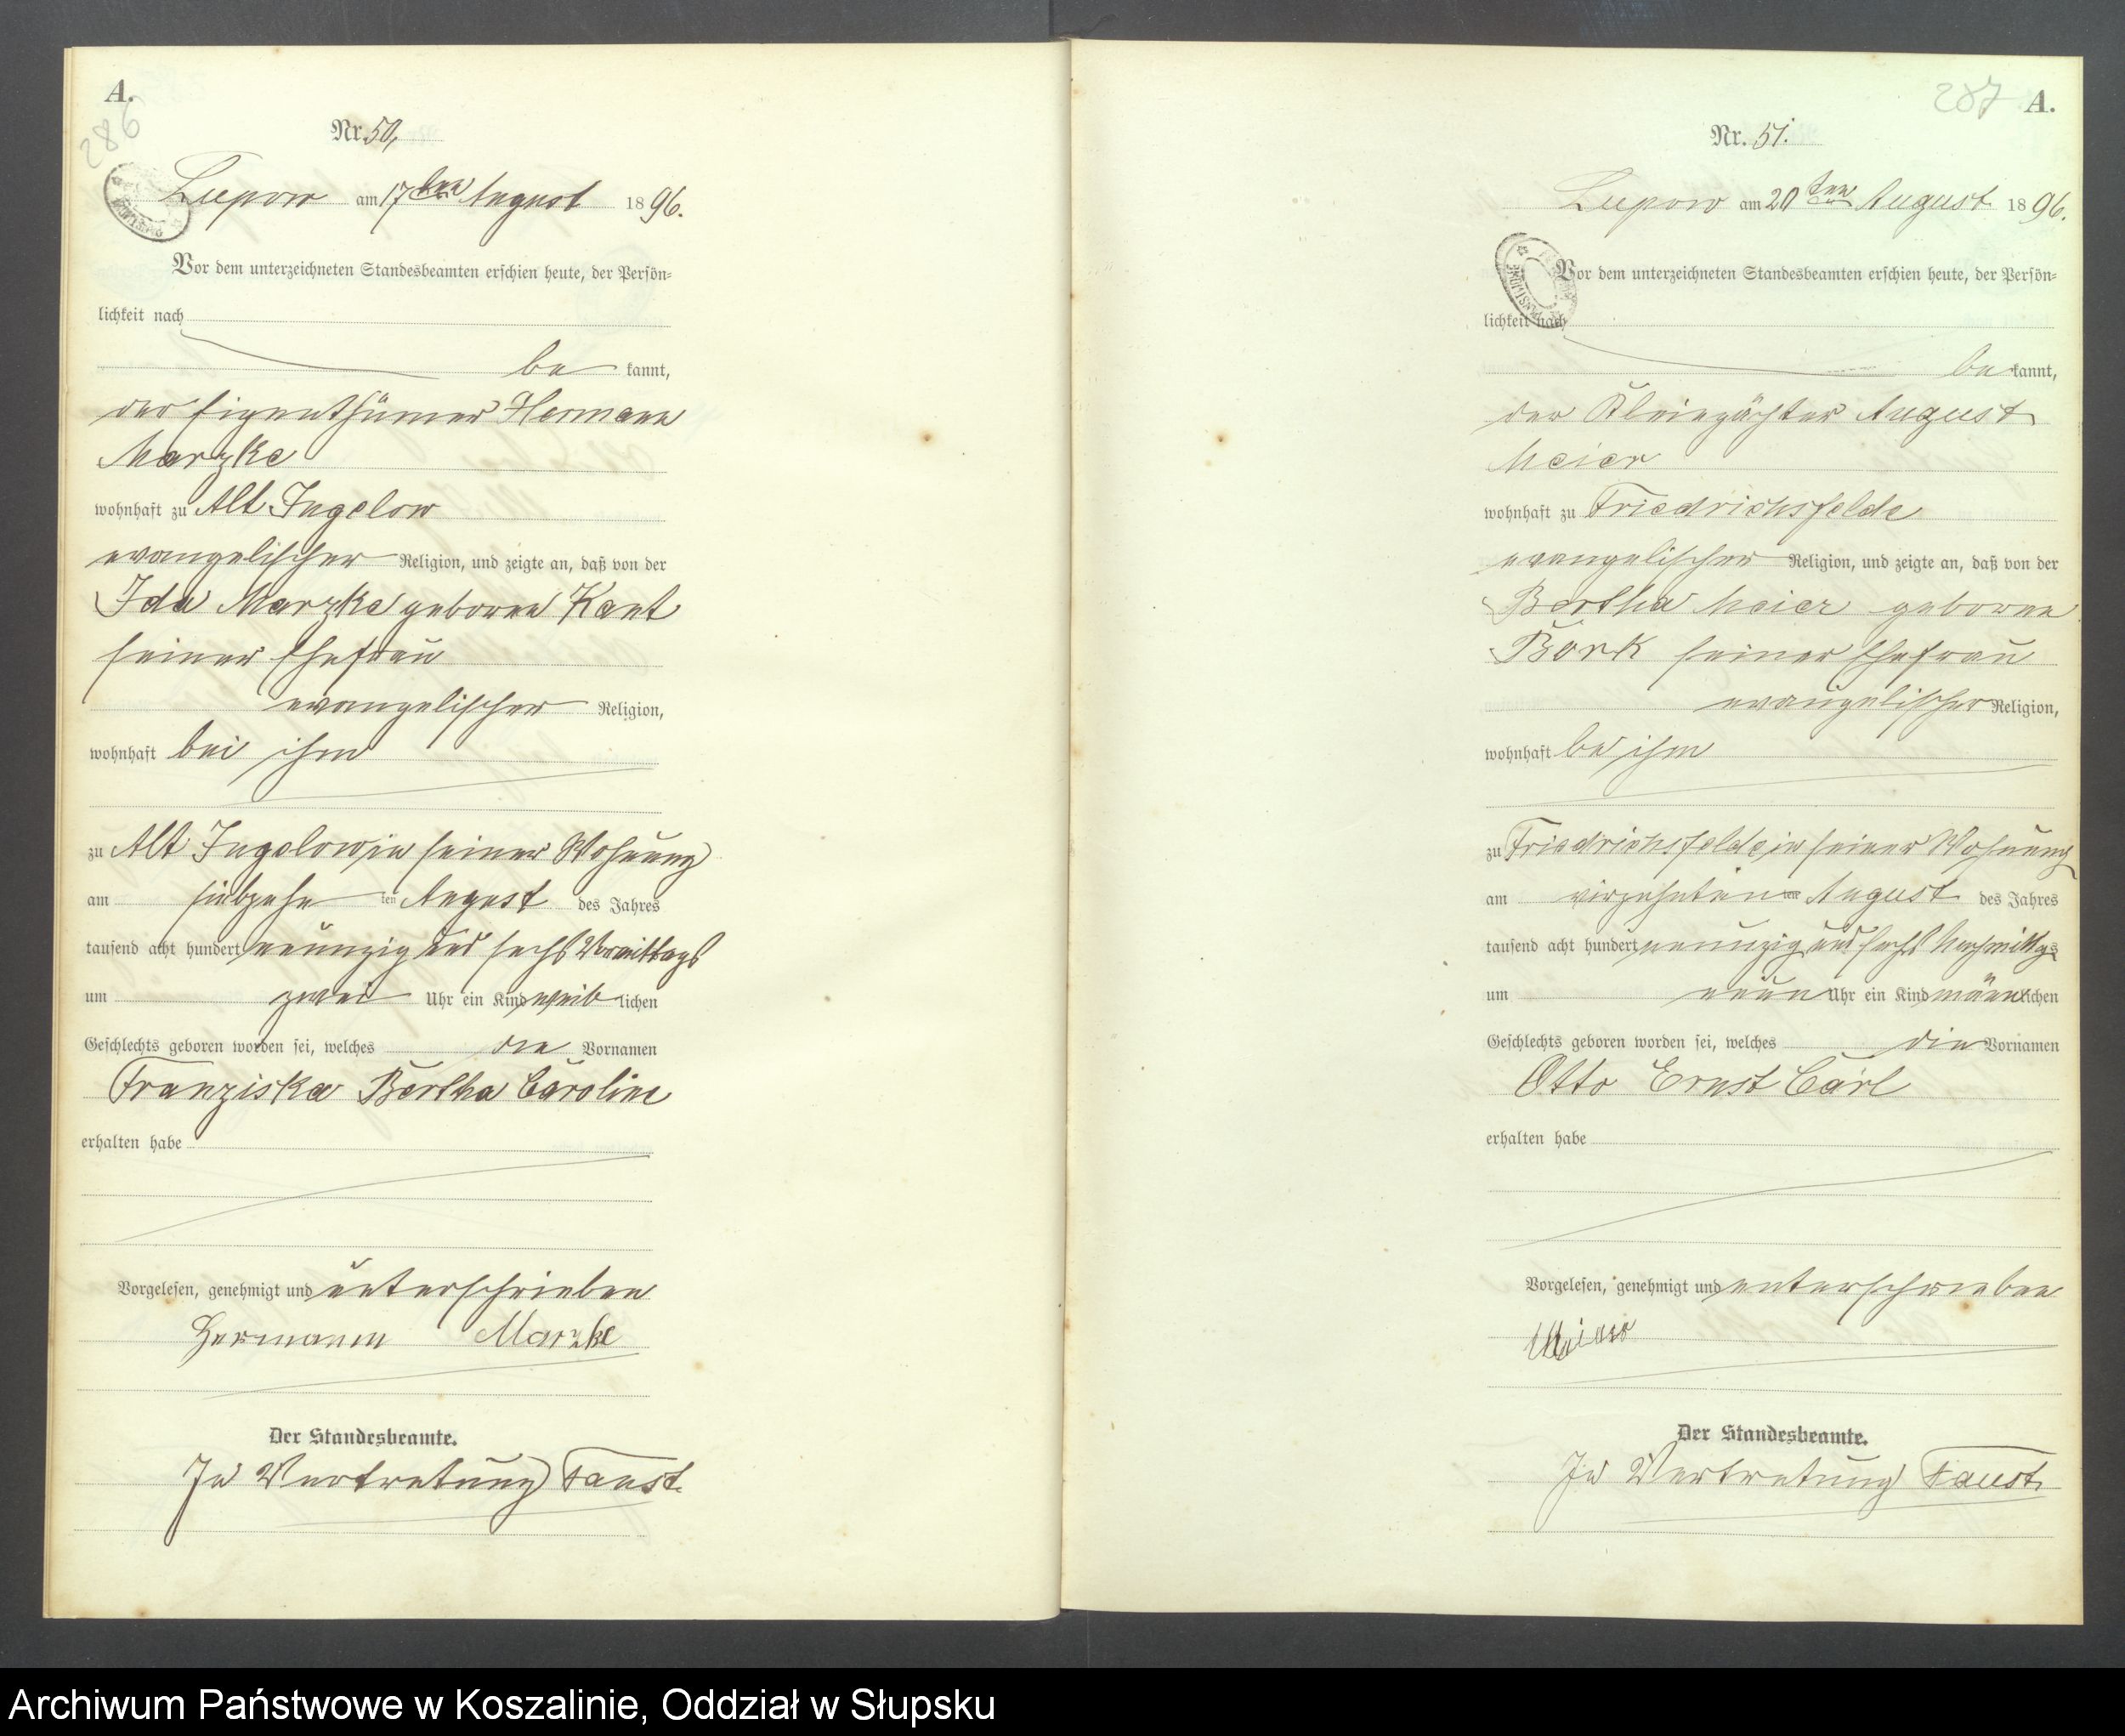 A.
286
Nr. 50,
Lupow am 17ten August 1896.
Vor dem unterzeichneten Standesbeamten erschien heute, der Persön-
lichkeit nach
be kannt,
der Eigenthümer Hermann
Marzke
wohnhaft zu Alt Jugelow
evangelischer Religion, und zeigte an, daß von der
Ida Marzke geborene Kant
seiner Ehefrau
evangelischer Religion,
wohnhaft bei ihm
zu Alt Jugelow, in seiner Wohnung
am siebzehn ten August des Jahres
tausend acht hundert neunzig und sechs Vormittags
um zwei Uhr ein Kind weib lichen
Geschlechts geboren worden sei, welches die Vornamen
Franziska Bertha Caroline
erhalten habe
Vorgelesen, genehmigt und unterschrieben
Hermann Marzke
Der Standesbeamte.
In Vertretung Faust.
287 A.
Nr. 51.
Lupow am 20ten August 1896.
Vor dem unterzeichneten Standesbeamten erschien heute, der Persön-
lichkeit nach
be kannt,
der Kleinpächter August
Meier
wohnhaft zu Friedrichsfelde
evangelischer Religion, und zeigte an, daß von der
Bertha Meier geborene
Bork seiner Ehefrau
evangelischer Religion,
wohnhaft bei ihm
zu Friedrichsfelde, in seiner Wohnung
am vierzehnten August des Jahres
tausend acht hundert neunzig und sechs Nachmittags
um neun Uhr ein Kind männlichen
Geschlechts geboren worden sei, welches die Vornamen
Otto Ernst Carl
erhalten habe
Vorgelesen, genehmigt und unterschrieben
Der Standesbeamte.
In Vertretung Faust.
Archiwum Państwowe w Koszalinie, Oddział w Słupsku